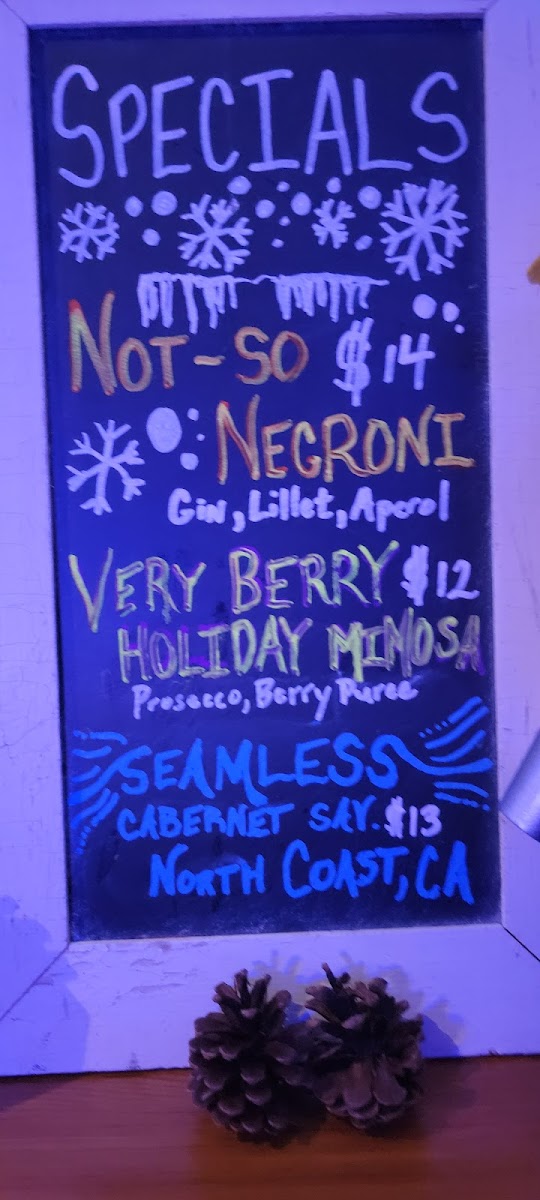 SPECIALS
NOT-SO $14
NEGRONI
Gin, Lillet, Aperol
VERY BERRY $12
HOLIDAY MIMOSA
Prosecco, Berry Puree
SEAMLESS
CABERNET SAV. $13
NORTH COAST, CA